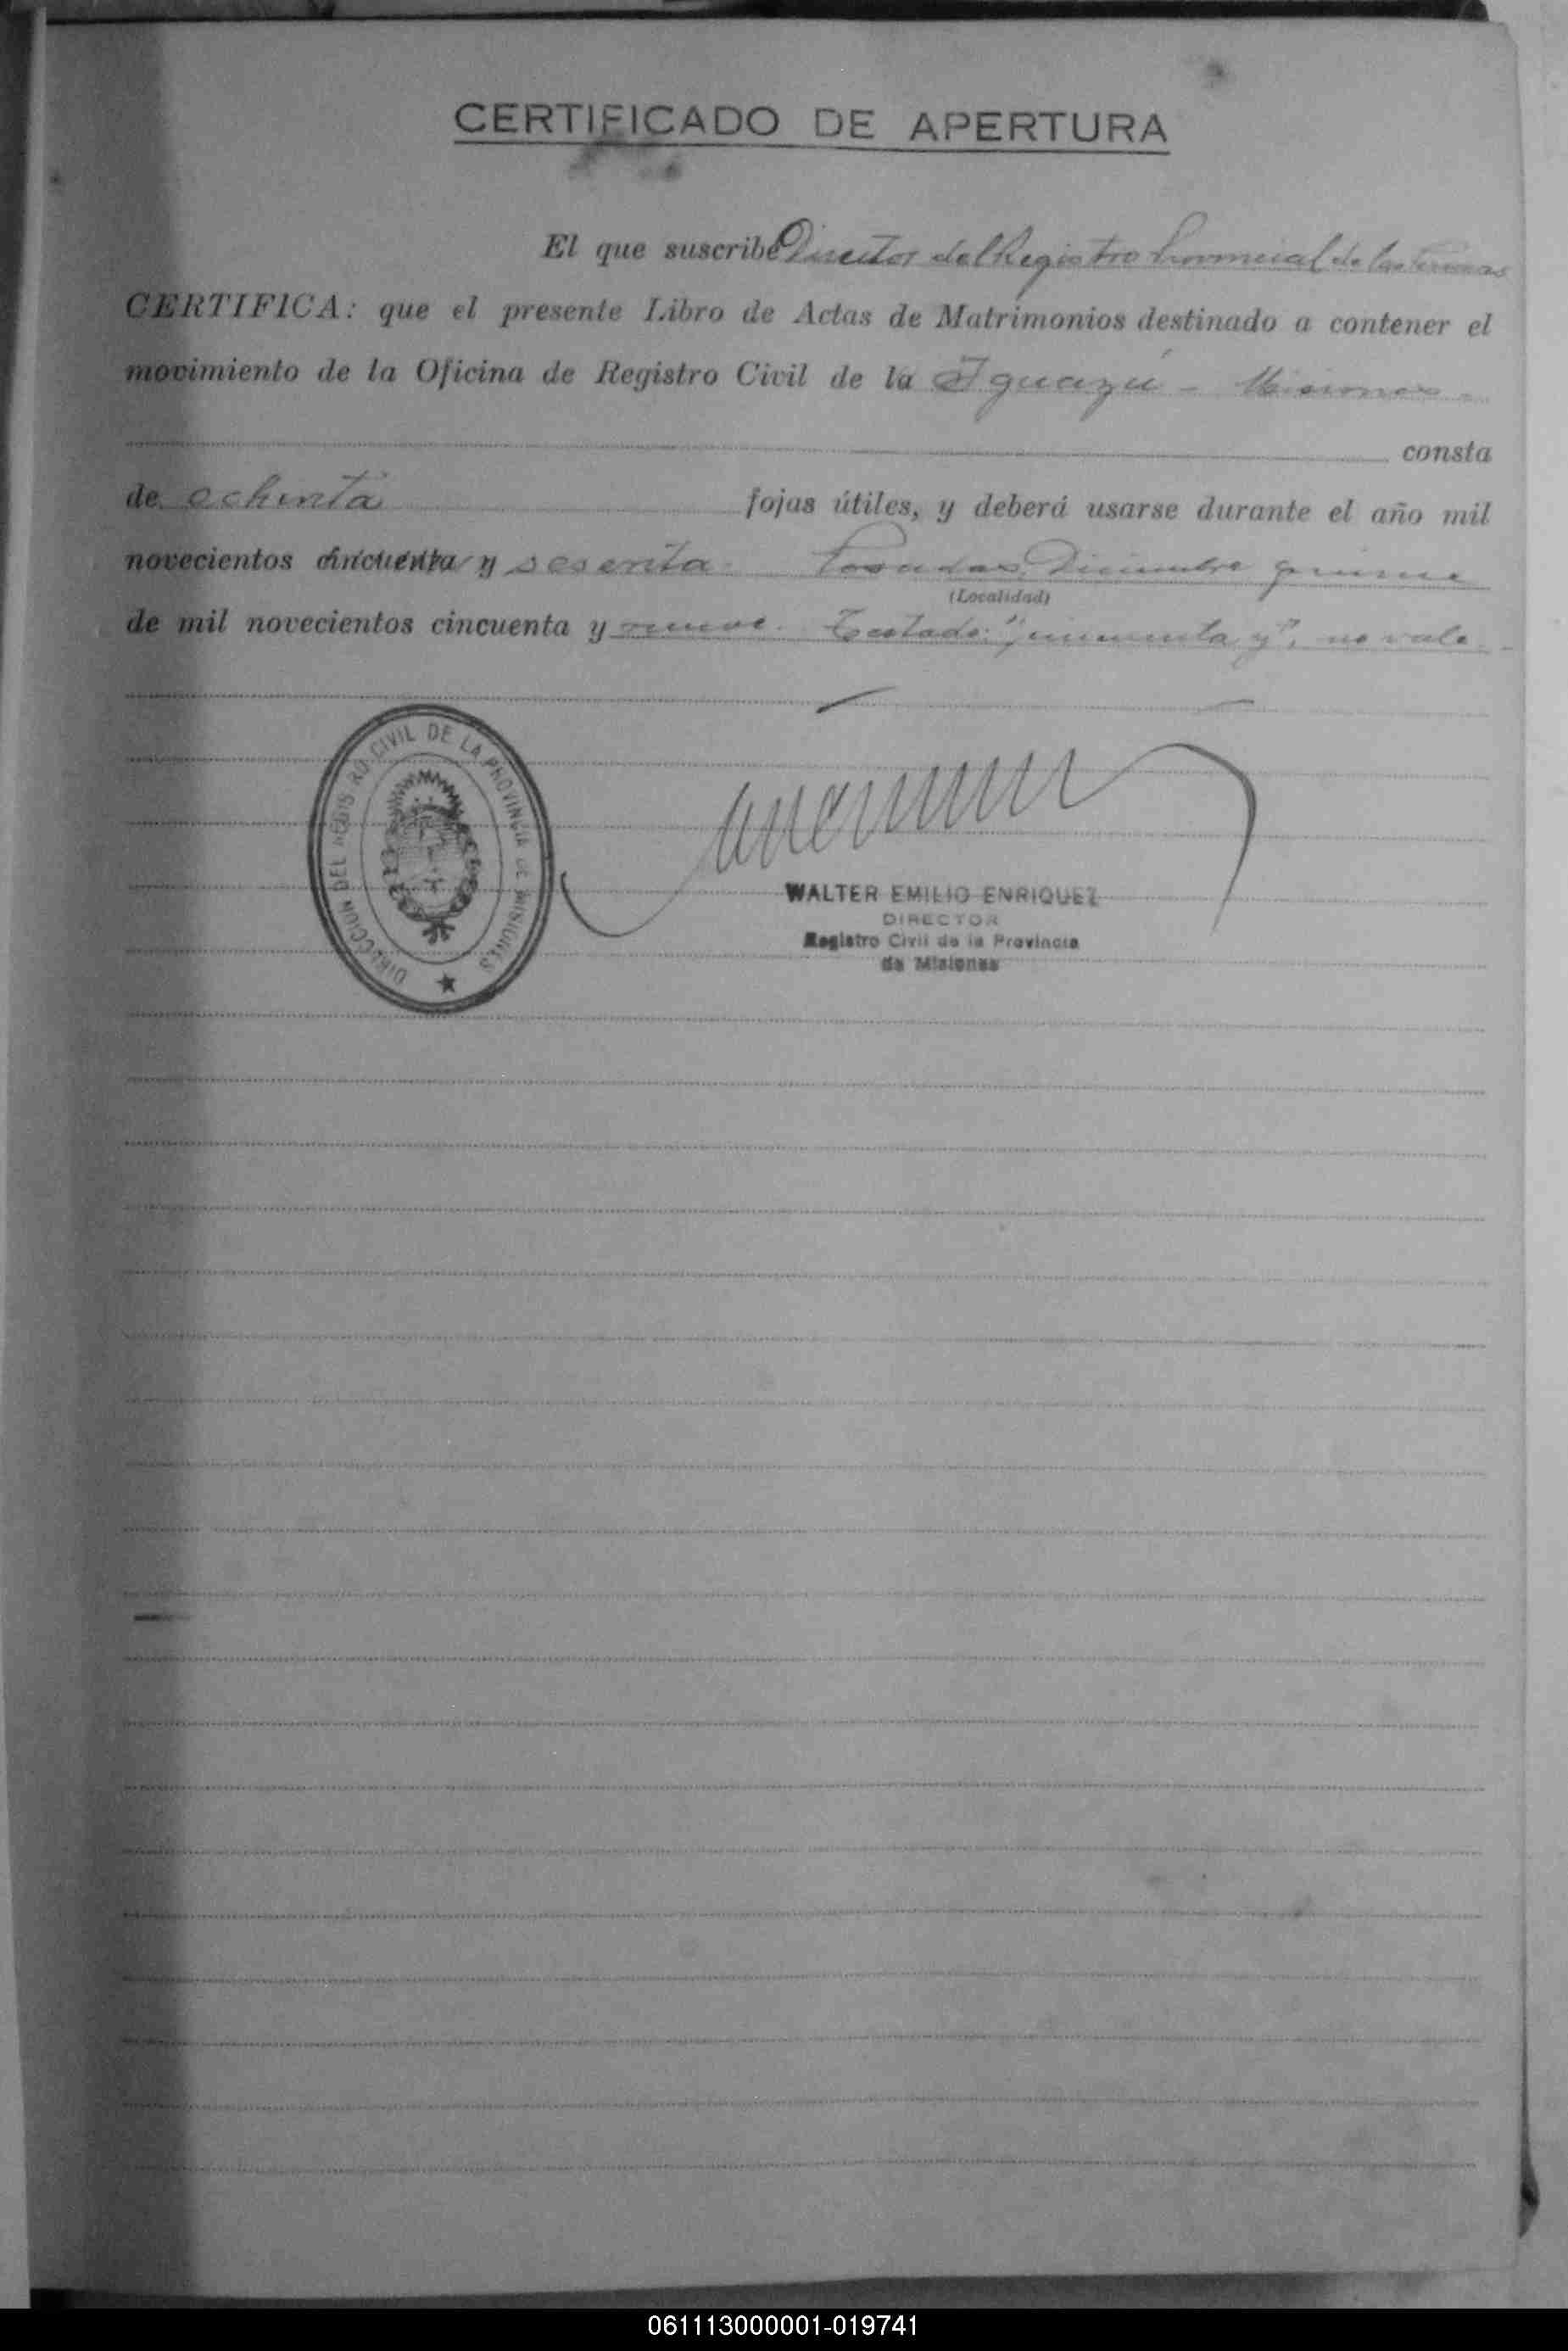 CERTIFICADO DE APERTURA
El que suscribe Director del Registro Provincial de las Personas
CERTIFICA: que el presente Libro de Actas de Matrimonios destinado a contener el
movimiento de la Oficina de Registro Civil de la Iguazú - Misiones -
consta
de ochenta fojas útiles, y deberá usarse durante el año mil
novecientos cincuenta y sesenta. Posadas, Diciembre primero
(Localidad)
de mil novecientos cincuenta y nueve. Testado: "cincuenta y", no vale.-
DIRECCION DEL REGISTRO CIVIL DE LA PROVINCIA DE MISIONES
WALTER EMILIO ENRIQUEZ
DIRECTOR
Registro Civil de la Provincia
de Misiones
061113000001-019741